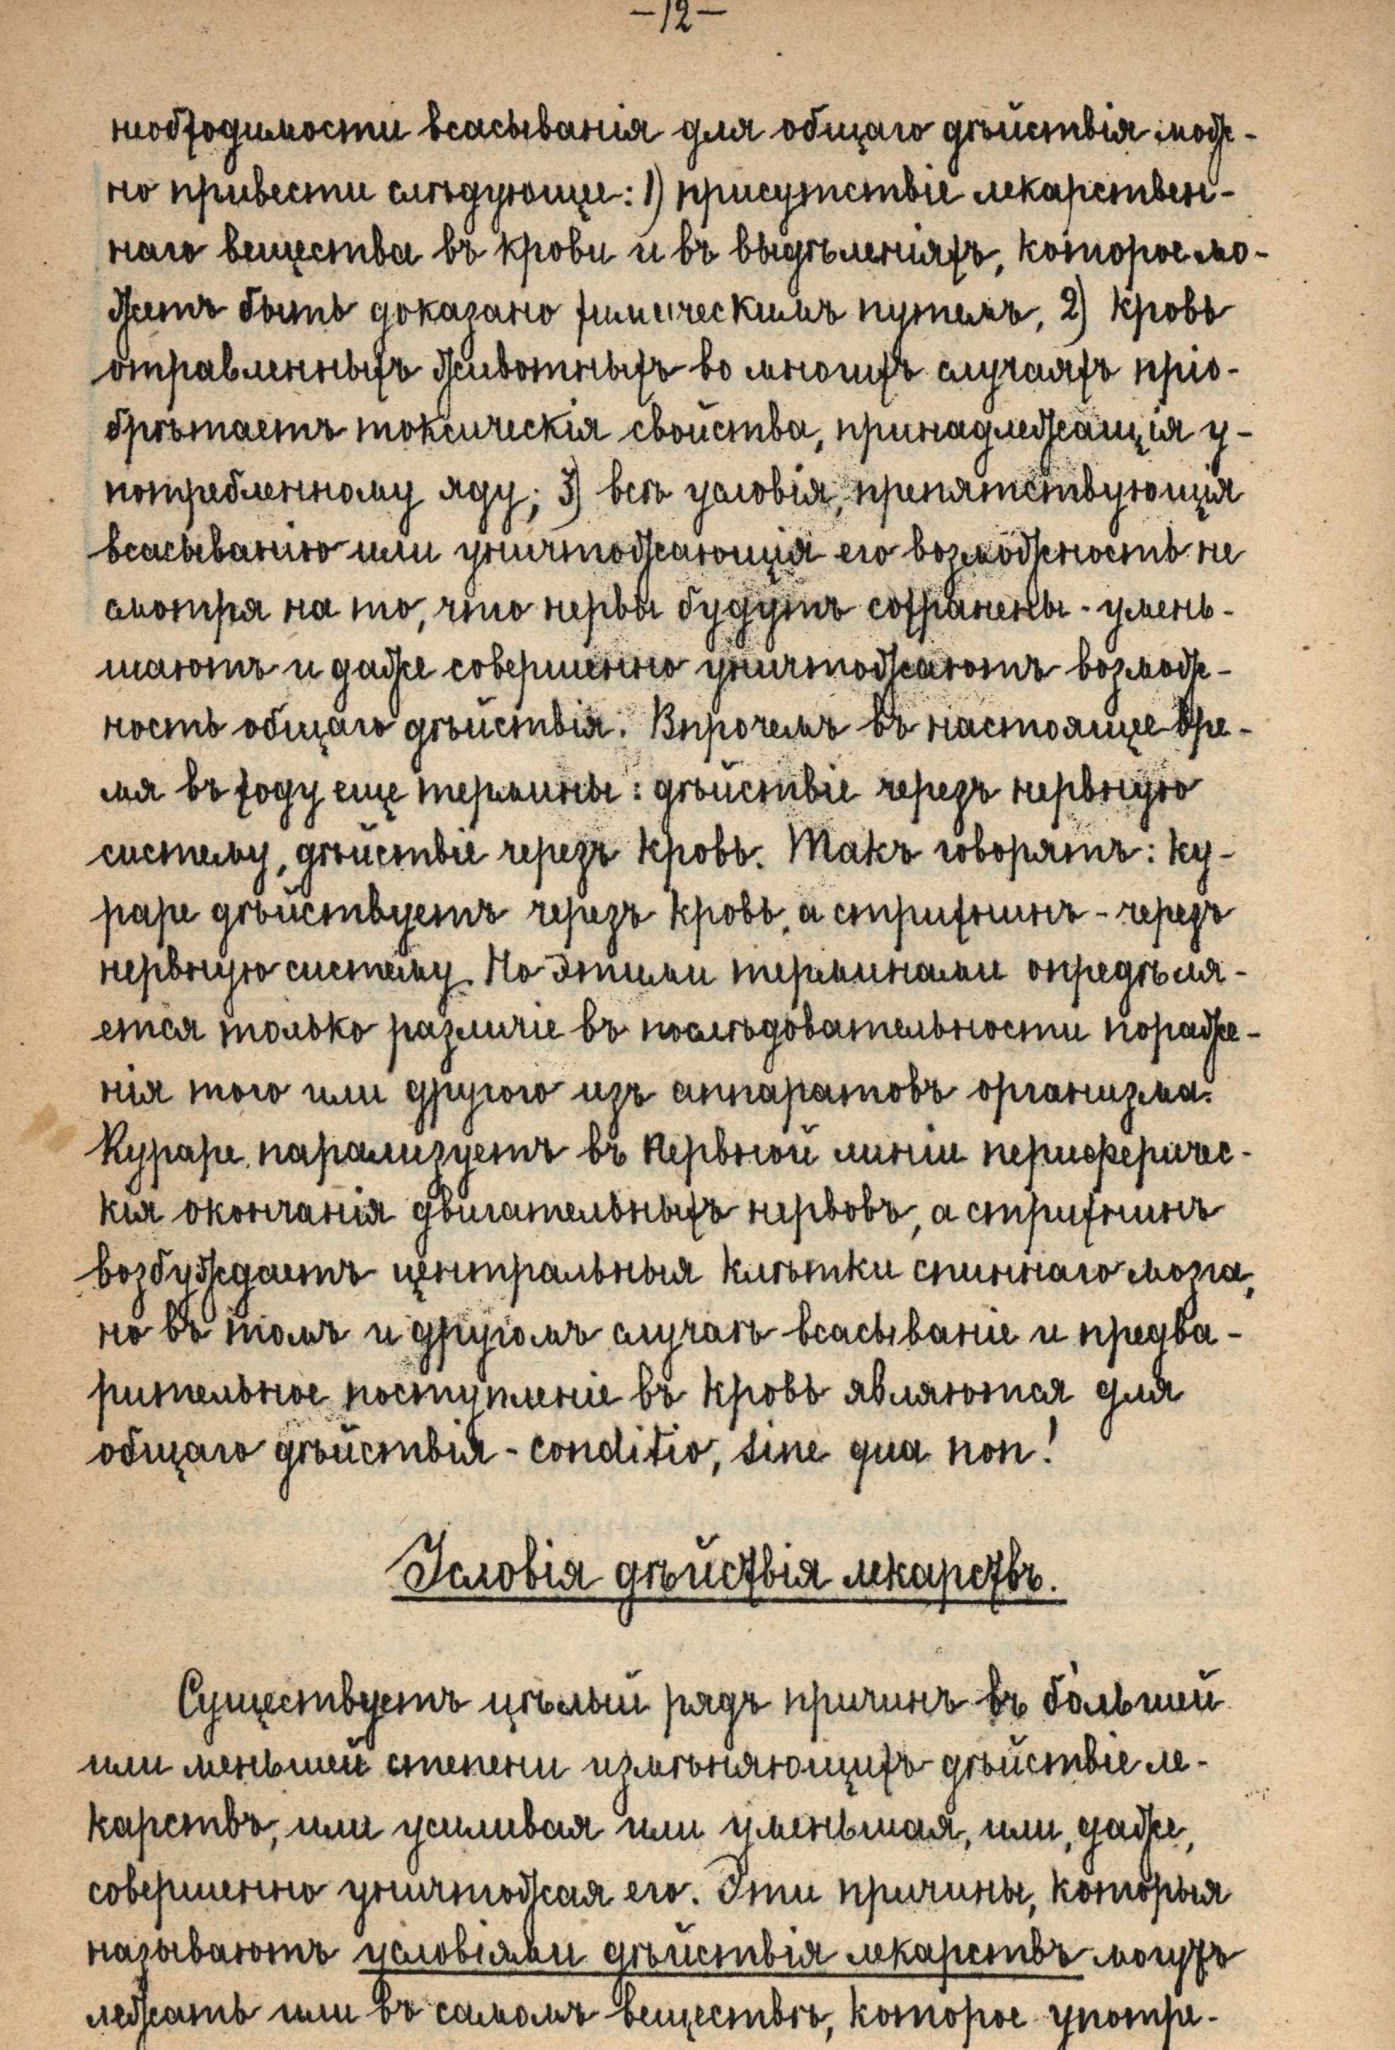 —12—
необходимости всасыванія для общаго дѣйствія мож-
но привести слѣдующіе: 1) присутствіе лекарствен-
наго вещества въ крови и въ выдѣленіяхъ, которое мо-
жетъ быть доказано химическимъ путемъ, 2) кровь
отравленныхъ животныхъ во многихъ случаяхъ пріо-
брѣтаетъ токсическія свойства, принадлежащія у-
потребленному яду; 3) всѣ условія, препятствующія
всасыванію или уничтожающія его возможность не
смотря на то, что нервы будутъ сохранены - умень-
шаютъ и даже совершенно уничтожаютъ возмож-
ность общаго дѣйствія. Впрочемъ въ настоящее вре-
мя въ ходу еще термины: дѣйствіе черезъ нервную
систему, дѣйствіе черезъ кровь. Такъ говорятъ: ку-
раре дѣйствуетъ черезъ кровь, а стрихнинъ - черезъ
нервную систему. Но этими терминами опредѣля-
ется только различіе въ послѣдовательности пораже-
нія того или другого изъ аппаратовъ организма.
Кураре парализуетъ въ первной линіи периферичес-
кія окончанія двигательныхъ нервовъ, а стрихнинъ
возбуждаетъ центральныя клѣтки спиннаго мозга,
но въ томъ и другомъ случаѣ всасываніе и предва-
рительное поступленіе въ кровь являются для
общаго дѣйствія - conditio, sine qua non!
Условія дѣйствія лекарствъ.
Существуетъ цѣлый рядъ причинъ въ бо̀льшей
или меньшей степени измѣняющихъ дѣйствіе ле-
карствъ, или усиливая или уменьшая, или, даже,
совершенно уничтожая его. Эти причины, которыя
называютъ условіями дѣйствія лекарствъ могутъ
лежать или въ самомъ веществѣ, которое употре-